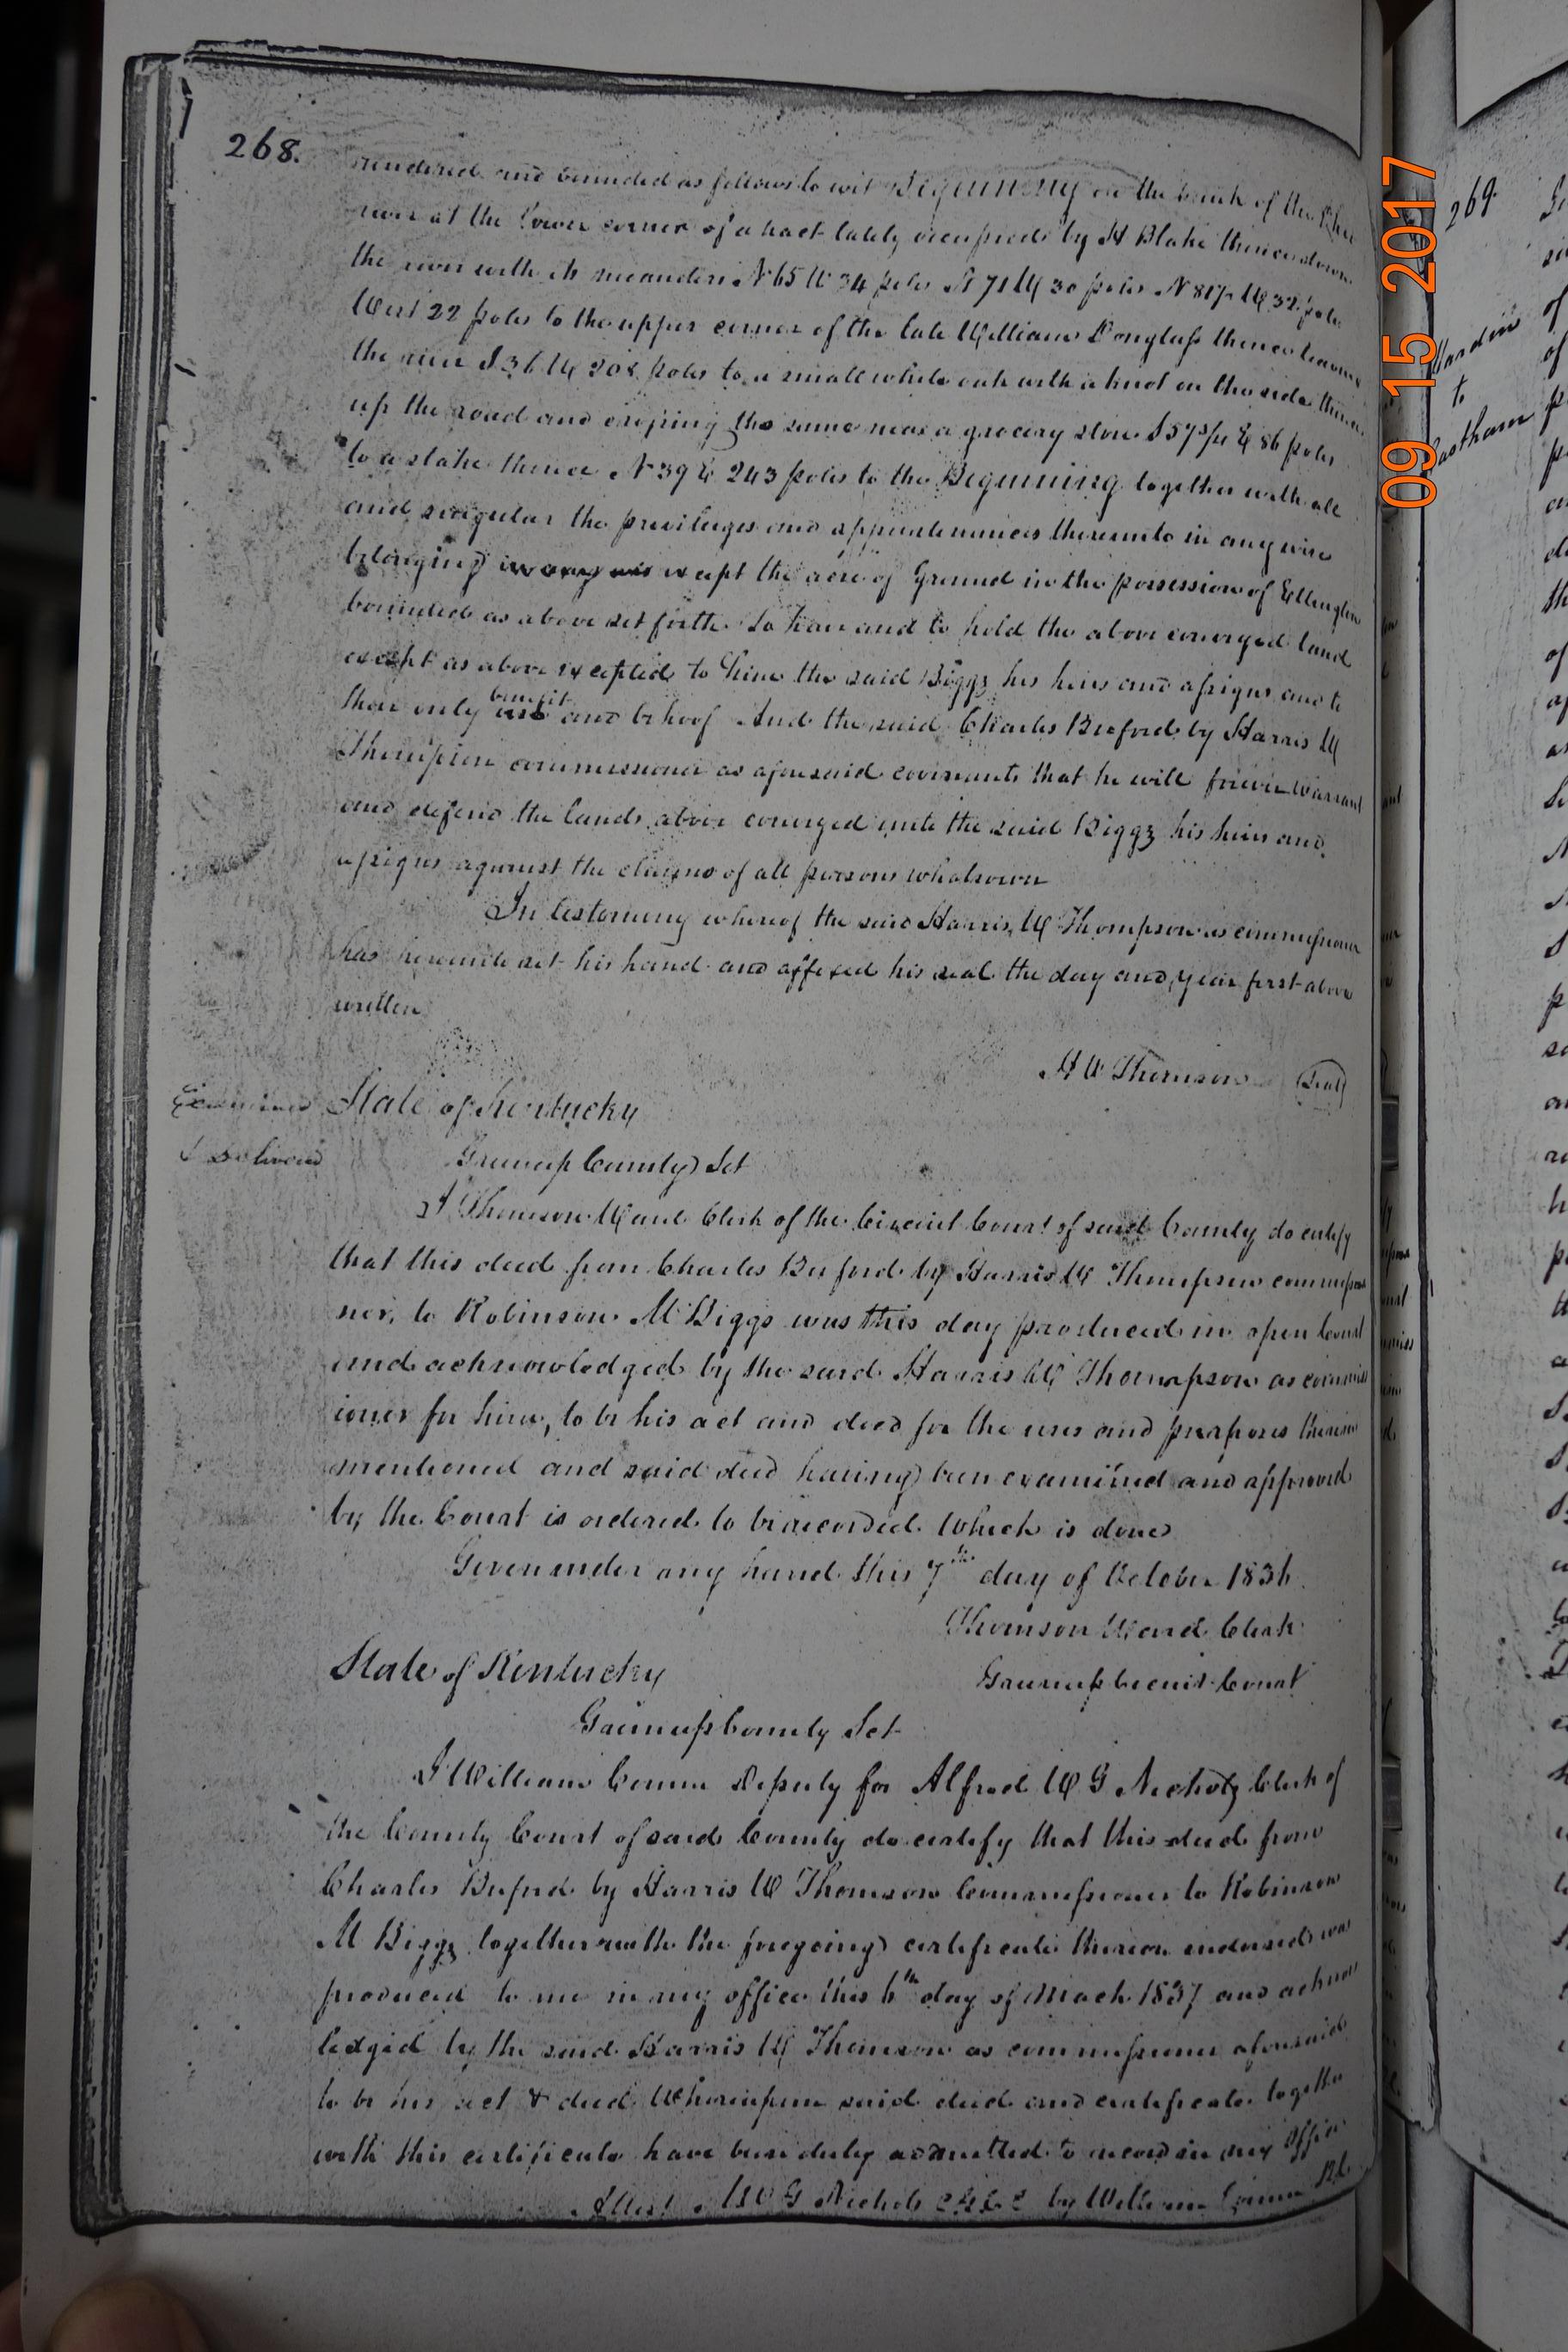 268.
and bounded as follows to wit Beginning on the bank of the
river at the lower corner of a tract lately occupied by H Blake thence down
the river with its meanders N 65 W 34 poles N 71 W 30 poles N 81½ W 32 poles
West 22 poles to the upper corner of the late William Douglass thence leaving
the river S 36 W 208 poles to a small white oak with a knot on the side thence
up the road and crossing the same near a grocery store S 57 3/4 E 86 poles
to a stake thence N 39 E 243 poles to the Beginning together with all
and singular the privileges and appurtenances thereunto in any wise
belonging except the acre of Ground in the possession of Ellington
bounded as above set forth. To have and to hold the above conveyed land
except as above excepted to him the said Biggs his heirs and assigns and to
their only benefit and behoof And the said Charles Buford by Harris W
Thompson commissioner as aforesaid covenants that he will forever warrant
and defend the lands above conveyed unto the said Biggs his heirs and
assigns against the claims of all persons whatsoever
In testimony whereof the said Harris W Thompson as commissioner
has hereunto set his hand and affixed his seal the day and year first above
written
H W Thomson (Seal)
Examined State of Kentucky
& Delivered Greenup County Sct
I Thomson Ward Clerk of the Circuit Court of said County do certify
that this deed from Charles Buford by Harris W Thompson commissio
ner, to Robinson M Biggs was this day produced in open Court
and acknowledged by the said Harris W Thompson as commiss
ioner for him, to be his act and deed for the uses and purposes therein
mentioned and said deed having been examined and approved
by the Court is ordered to be recorded Which is done
Given under my hand this 7th day of October 1836
Thomson Ward Clerk
State of Kentucky Greenup Circuit Court
Greenup County Sct
I William Corum Deputy for Alfred W G Nichols Clerk of
the County Court of said County do certify that this deed from
Charles Buford by Harris W Thomson Commissioner to Robinson
M Biggs together with the foregoing certificate thereon endorsed was
produced to me in my office this 6th day of March 1837 and acknow
ledged by the said Harris W Thomson as commissioner aforesaid
to be his act & deed Whereupon said deed and certificate together
with this certificate have been duly admitted to record in my office
Attest A W G Nichols by William Corum
269
Hardin
to
Eastham
09 15 2017